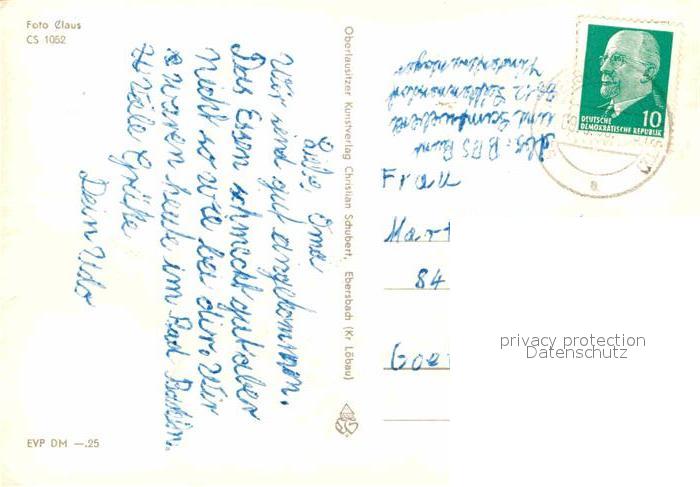 Foto Claus
CS 1052
Liebe Oma
Wir sind gut angekommen.
Das Essen schmeckt gut aber
nicht so wie bei dir. Wir
waren heute im Bad
Viele Grüße
Dein Udo
EVP DM —.25
Oberlausitzer Kunstverlag Christian Schubert, Ebersbach (Kr Löbau)
Abs.
und
Kinderferienlager
10
DEUTSCHE
DEMOKRATISCHE REPUBLIK
a
Frau
Mart
84
Goe
privacy protection
Datenschutz